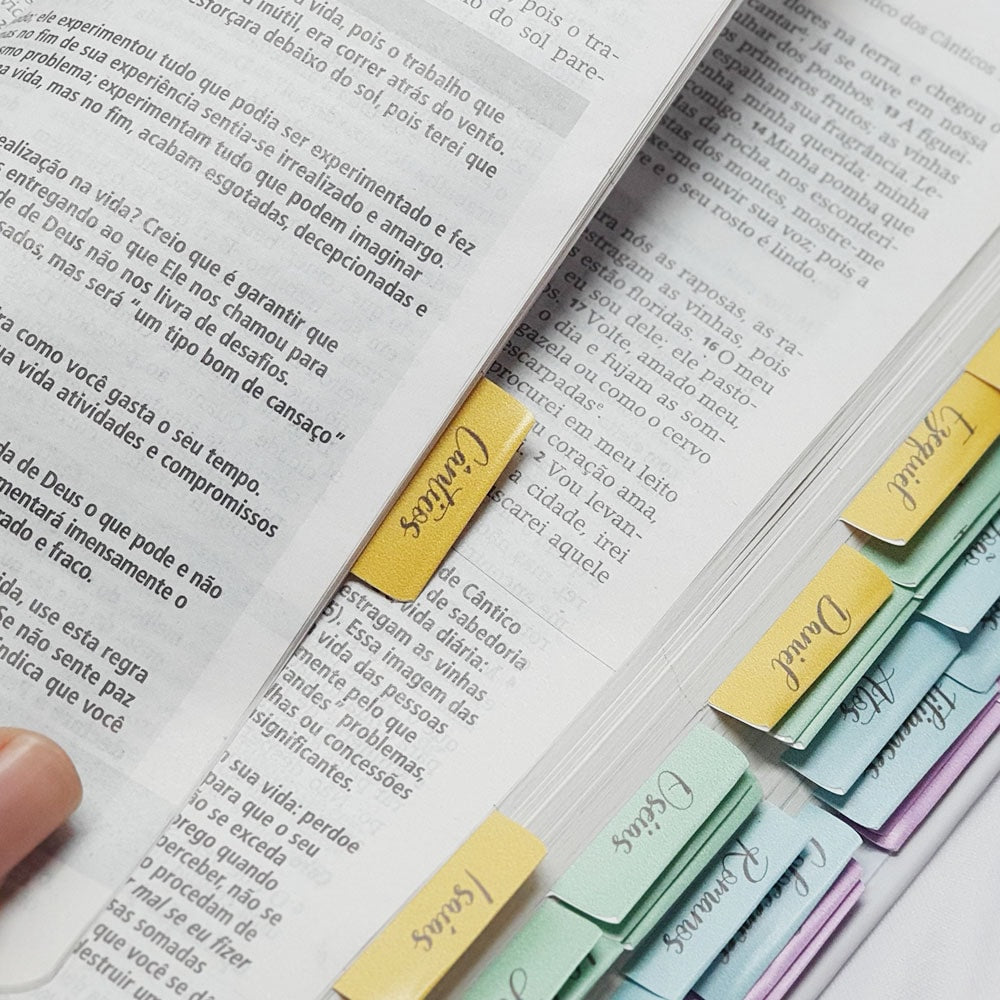 vida, pois o trabalho que
inútil, era correr atrás do vento.
esforçara debaixo do sol, pois terei que
ele experimentou tudo que podia ser experimentado e fez
no fim de sua experiência sentia-se irrealizado e amargo.
mo problema: experimentam tudo que podem imaginar
a vida, mas no fim, acabam esgotadas, decepcionadas e
ealização na vida? Creio que é garantir que
entregando ao que Ele nos chamou para
de de Deus não nos livra de desafios.
sados, mas será "um tipo bom de cansaço"
ra como você gasta o seu tempo.
ua vida atividades e compromissos
da de Deus o que pode e não
mentará imensamente o
rado e fraco.
ida, use esta regra
Se não sente paz
ndica que você
pois o tra-
do sol pare-
ico dos Cânticos
flores na terra, e chegou
cantar, já se ouve em nossa
olhar dos pombos. 13 A figuei-
os primeiros frutos; as vinhas
espalham sua fragrância. Le-
minha querida; minha
comigo. 14 Minha pomba que
tas da rocha, nos esconderi-
dos montes, mostre-me
-me ouvir sua voz; pois a
e o seu rosto é lindo.
ra nós as raposas, as ra-
stragam as vinhas, pois
estão floridas. 16 O meu
eu sou dele; ele pasto-
s. 17 Volte, amado meu,
o dia e fujam as som-
gazela ou como o cervo
escarpadas
procurei em meu leito
u coração ama,
2 Vou levan-
a cidade, irei
scarei aquele
de Cântico
de sabedoria
vida diária:
estragam as vinhas
5) Essa imagem das
vida das pessoas
mente pelo que
andes" problemas,
lhas ou concessões
significantes.
sua vida: perdoe
para que o seu
ão se exceda
prego quando
perceber, não se
o procedam de
mal se eu fizer
sas somadas
que você se
destruir um
Cânticos
Ezequiel
Daniel
Atos
Filipenses
Oséias
Romanos
Isaías